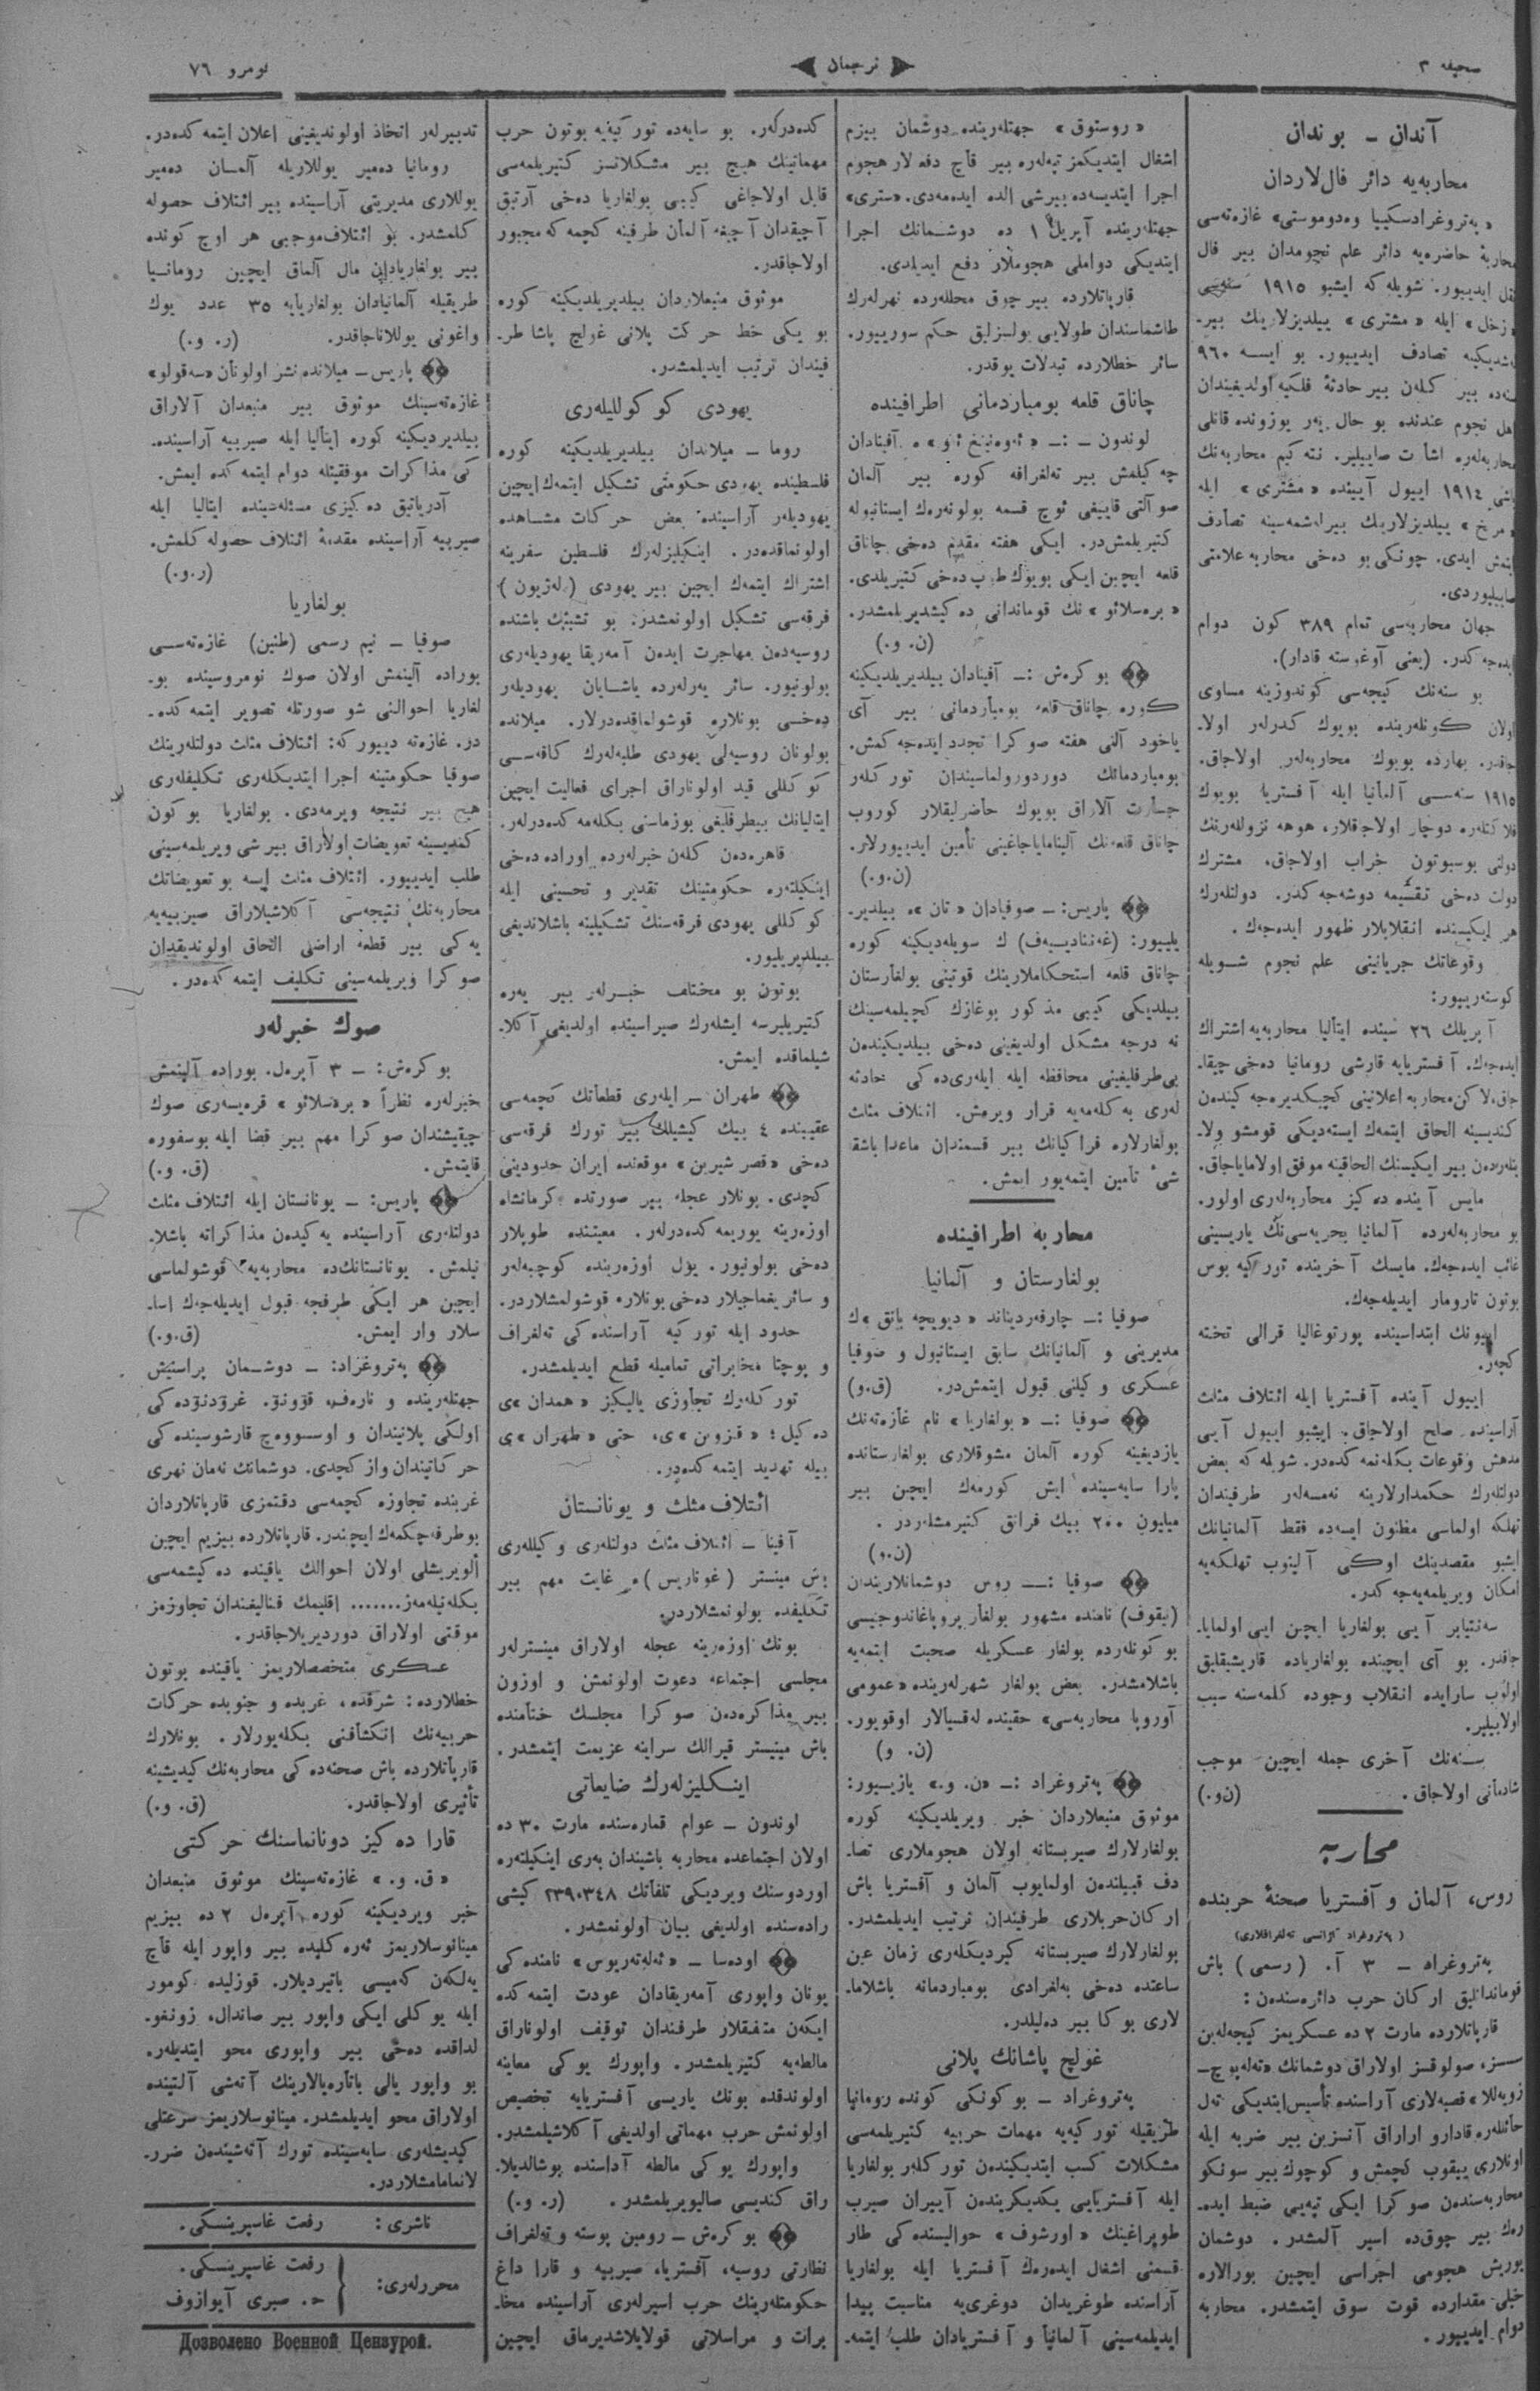 صحیفه ٣
ترجمان
نومرو ٧٦
آندان ـ بوندان
محاربه‌یه دائر فال‌لاردان
«په‌تروغرادسکییا وه‌دوموستی» غازه‌ته‌سی
محاربهٔ حاضره‌یه دائر علم نجومدان بیر فال
نقل ایدییور. شویله که ایشبو ١٩١٥ سنه‌سی
«زحل» ایله «مشتری» ییلدیزلارینك بیر-
له‌شدیکینه تصادف ایدییور. بو ایسه ٩٦٠
سنه‌ده بیر کلەن بیر حادثهٔ فلکیه اولدیغیندان
اهل نجوم عندنده بو حال یه‌ر یوزونده قانلی
محاربه‌لره اشارت صاییلیر. نته کیم محاربه‌نك
باشی ١٩١٤ اییول آیینده «مشتری» ایله
«مریخ» ییلدیزلارینك بیرله‌شمه‌سینه تصادف
ایتمش ایدی. چونکی بو دخی محاربه علامتی
صاییلییوردی.
جهان محاربه‌سی تمام ٣٨٩ کون دوام
ایده‌جه‌کدر. (یعنی آوغوسته قادار).
بو سنه‌نك کیجه‌سی کوندوزینه مساوی
اولان کونلەرینده بویوك کدرلەر اولا-
جاقدر. بهارده بویوك محاربه‌لەر اولاجاق.
١٩١٥ سنه‌سی آلمانیا ایله آفستریا بویوك
فلاکتلەره دوچار اولاجاقلار، هوهه نزوللەرنك
دولتی بوسبوتون خراب اولاجاق. مشترك
دولت دخی تقسیمه دوشه‌جه‌کدر. دولتلەرك
هر ایکیسنده انقلابلار ظهور ایده‌جەك.
وقوعاتك جریانینی علم نجوم شویله
کوسته‌رییور:
آپریلك ٢٦ سنده ایتالیا محاربه‌یه اشتراك
ایده‌جەك. آفستریایه قارشی رومانیا دخی چیقا-
جاق، لاکن محاربه اعلانینی کچیکدیره‌جه کیندن
کندیسینه الحاق ایتمەك ایسته‌دیکی قومشو ولا-
یتلەردەن بیر ایکیسنك الحاقینه موفق اولامایاجاق.
مایس آینده ده‌کیز محاربه‌لەری اولور.
بو محاربه‌لەرده آلمانیا بحریه‌سی‌نك یاریسینی
غائب ایده‌جەك. مایسك آخرینده تورکیه بوس
بوتون تارومار ایدیله‌جەك.
اییونك ابتداسینده پورتوغالیا قرالی تخته
کچەر.
اییول آینده آفستریا ایله ائتلاف مثلث
آراسینده صلح اولاجاق. ایشبو اییول آیی
مدهش وقوعات بکله‌نمه کده‌در. شویله که بعض
دولتلەرك حکمدارلارینه نەمسەلەر طرفیندان
تهلکه اولماسی مظنون ایسه‌ده فقط آلمانیانك
ایشبو مقصدینك اوکی آلینوب تهلکه‌یه
امکان ویریلمه‌یه‌جه کدر.
سەنتیابر آیی بولغاریا ایچین ایی اولمایا-
جاقدر. بو آی ایچینده بولغاریاده قاریشیقلیق
اولوب سارایده انقلاب وجوده کلمه‌سنه سبب
اولابیلیر.
سنه‌نك آخری جمله ایچین موجب
شادمانی اولاجاق. (ن.و.)
محاربه
روس، آلمان و آفستریا صحنهٔ حربنده
(په‌تروغراد آژانسی ته‌لغرافلاری)
په‌تروغراد ـ ٣ آ. (رسمی) باش
قومانداانلیق ارکان حرب دائره‌سندەن:
قارپاتلارده مارت ٢ ده عسکریمز کیجه‌لەین
سسز، صولوقسز اولاراق دوشمانك «ته‌له‌پوچ-
زویەللا» قصبه‌لاری آراسنده تأسیس ایتدیکی تەل
حائللەره قادار واراراق آنسزین بیر ضربه ایله
اونلاری ییقوب کچمش و کوچوك بیر سونکو
محاربه‌سندەن صوکرا ایکی تپه‌یی ضبط ایده-
رەك بیر چوق‌ده اسیر آلمشدر. دوشمان
یوریش هجومی اجراسی ایچین بورالاره
خیلی مقدارده قوت سوق ایتمشدر. محاربه
دوام ایدییور.
«روستوق» جهتلەرینده دوشمان بیزم
اشغال ایتدیکمز تپه‌لەره بیر قاچ دفعه‌لار هجوم
اجرا ایتدیسه‌ده بیرشی الده ایده‌مه‌دی. «ستری»
جهتلەرینده آپریل ١ ده دوشمانك اجرا
ایتدیکی دواملی هجوملار دفع ایدیلدی.
قارپاتلارده بیر چوق محللەرده نهرلەرك
طاشماسندان طولایی یولسزلیق حکم سورییور.
سائر خطلارده تبدلات یوقدر.
چاناق قلعه بومباردمانی اطرافینده
لوندون ـ :ـ «ئوه‌نینغ نئو» ه آفینادان
چه کیلمش بیر ته‌لغرافه کوره بیر آلمان
صو آلتی قاییغی ئوچ قسمه بولونه‌رەك ایستانبوله
کتیریلمش‌در. ایکی هفته مقدم دخی چاناق
قلعه ایچین ایکی بویوك طوپ دخی کتیریلدی.
«بره‌سلائو» نك قوماندانی ده کیشدیریلمشدر.
(ن. و.)
بوکرەش :ـ آفینادان بیلدیریلدیکینه
کوره چاناق قلعه بومباردمانی بیر آی
یاخود آلتی هفته صوکرا تجدد ایده‌جه کمش.
بومباردمانك دوردورولماسیندان تورکلەر
جسارت آلاراق بویوك حاضرلیقلار کوروب
چاناق قلعه‌نك آلینامایاجاغینی تأمین ایدییورلار.
(ن.و.)
پاریس: ـ صوفیادان «تان» ه بیلدیر-
یلییور: (غه‌نادییەف) ك سویله‌دیکینه کوره
چاناق قلعه استحکاملارینك قوتینی بولغارستان
بیلدیکی کیبی مذکور بوغازك کچیلمه‌سینك
نه درجه مشکل اولدیغینی دخی بیلدیکیندەن
بی‌طرفلیغینی محافظه ایله ایلەری‌ده کی حادثه
لەری به کله‌مه‌یه قرار ویرمش. ائتلاف مثلث
بولغارلاره فراکیانك بیر قسمندان ماعدا باشقه
شیٔ تأمین ایتمه‌یور ایمش.
محاربه اطرافینده
بولغارستان و آلمانیا
صوفیا :ـ چارفه‌ردیناند «دیویچه بانق» ك
مدیرینی و آلمانیانك سابق ایستانبول و صوفیا
عسکری وکیلنی قبول ایتمش‌در. (ق.و)
صوفیا :ـ «بولغاریا» نام غازه‌ته‌نك
یازدیغینه کوره آلمان مشوقلاری بولغارستانده
پارا سایه‌سینده ایش کورمەك ایچین بیر
میلیون ٢٠٠ بیك فرانق کتیرمشلەردر.
(ن.و)
صوفیا :ـ روس دوشمانلاریندان
(بیقوف) نامنده مشهور بولغار پروپاغاندوجیسی
بو کونلەرده بولغار عسکریله صحبت ایتمه‌یه
باشلامشدر. بعض بولغار شهرلەرینده «عمومی
آوروپا محاربه‌سی» حقینده لەقسیالار اوقویور.
(ن. و)
په‌تروغراد :ـ «ن. و.» یازییور:
موثوق منبعلاردان خبر ویریلدیکینه کوره
بولغارلارك صیربستانه اولان هجوملاری تصا-
دف قبیلندەن اولمایوب آلمان و آفستریا باش
ارکان حربلاری طرفیندان ترتیب ایدیلمشدر.
بولغارلارك صیربستانه کیردیکلەری زمان عین
ساعتده دخی بەلغرادی بومباردمانه باشلاما-
لاری بوکا بیر دەلیلدر.
غولچ پاشانك پلانی
په‌تروغراد ـ بو کونکی کونده رومانیا
طریقیله تورکیه‌یه مهمات حربیه کتیریلمه‌سی
مشکلات کسب ایتدیکیندەن تورکلەر بولغاریا
ایله آفستریایی یکدیکریندەن آییران صیرب
طوپراغینك «اورشوف» حوالیسنده کی طار
قسمنی اشغال ایده‌رەك آفستریا ایله بولغاریا
آراسنده طوغریدان دوغری‌یه مناسبت پیدا
ایدیلمه‌سینی آلمانیا و آفستریادان طلب ایتمه-
کده‌درلەر. بو سایه‌ده تورکیه‌یه بوتون حرب
مهماتینك هیچ بیر مشکلاتسز کتیریلمه‌سی
قابل اولاجاغی کیبی بولغاریا دخی آرتیق
آچیقدان آچیغه آلمان طرفینه کچمه که مجبور
اولاجاقدر.
موثوق منبعلاردان بیلدیریلدیکینه کوره
بو یکی خط حرکت پلانی غولچ پاشا طر-
فیندان ترتیب ایدیلمشدر.
یهودی کوکوللیلەری
روما ـ میلاندان بیلدیریلدیکینه کوره
فلسطینده یهودی حکومتی تشکیل ایتمەك ایچین
یهودیلەر آراسینده بعض حرکات مشاهده
اولونماقده‌در. اینکیلیزلەرك فلسطین سفرینه
اشتراك ایتمەك ایچین بیر یهودی (لەژیون)
فرقه‌سی تشکیل اولونمشدر. بو تشبثك باشنده
روسیه‌دەن مهاجرت ایدەن آمەریقا یهودیلەری
بولونیور. سائر یەرلەرده یاشایان یهودیلەر
دخی بونلاره قوشولماقده‌درلار. میلانده
بولونان روسیه‌لی یهودی طلبه‌لەرك کافه‌سی
کوکللی قید اولوناراق اجرای فعالیت ایچین
ایتالیانك بیطرفلیغی بوزماسنی بکله‌مه کده‌درلەر.
قاهره‌دەن کلەن خبرلەرده اوراده دخی
اینکیلتەره حکومتینك تقدیر و تحسینی ایله
کوکللی یهودی فرقه‌سنك تشکیلینه باشلاندیغی
بیلدیریلییور.
بوتون بو مختلف خبرلەر بیر یەره
کتیریلیرسه ایشلەرك صیراسینده اولدیغی آکلا-
شیلماقده ایمش.
طهران ـ ایلەری قطعاتك کچمه‌سی
عقیبنده ٤ بیك کیشیلك بیر تورك فرقه‌سی
دخی «قصر شیرین» موقعنده ایران حدودینی
کچدی. بونلار عجله بیر صورتده کرمانشاه
اوزەرینه یوریمه کده‌درلەر. معیتنده طوپلار
دخی بولونیور. یول اوزەرینده کوچبه‌لەر
و سائر یغماجیلار دخی بونلاره قوشولمشلاردر.
حدود ایله تورکیه آراسنده کی ته‌لغراف
و پوچتا مخابراتی تمامیله قطع ایدیلمشدر.
تورکلەرك تجاوزی یالیکیز «همدان» ی
ده کیل؛ «قزوین» ی، حتی «طهران» ی
بیله تهدید ایتمه کده‌در.
ائتلاف مثلث و یونانستان
آفینا ـ ائتلاف مثلث دولتلەری وکیللەری
باش مینستر (غوناریس) ه غایت مهم بیر
تکلیفده بولونمشلاردر.
بونك اوزەرینه عجله اولاراق مینسترلەر
مجلسی اجتماعه دعوت اولونمش و اوزون
بیر مذاکره‌دەن صوکرا مجلسك ختامنده
باش مینیستر قیرالك سراینه عزیمت ایتمشدر.
اینکلیزلەرك ضایعاتی
لوندون ـ عوام قماره‌سنده مارت ٣٠ ده
اولان اجتماعده محاربه باشیندان بەری اینکیلتەره
اوردوسنك ویردیکی تلفاتك ٢٣٩٠٣٤٨ کیشی
راده‌سنده اولدیغی بیان اولونمشدر.
اودەسا ـ «ئەلەتەریوس» نامنده کی
یونان واپوری آمەریقادان عودت ایتمه کده
ایکەن متفقلار طرفندان توقیف اولوناراق
مالطه‌یه کتیریلمشدر. واپورك یوکی معاینه
اولوندقده بونك یاریسی آفستریایه تخصیص
اولونمش حرب مهماتی اولدیغی آکلاشیلمشدر.
واپورك یوکی مالطه آداسنده بوشالدیلا-
راق کندیسی صالیویریلمشدر. (ر. و.)
بوکرەش ـ رومین پوسته و ته‌لغراف
نظارتی روسیه، آفستریا، صیربیه و قارا داغ
حکومتلەرینك حرب اسیرلەری آراسینده مخا-
برات و مراسلاتی قولایلاشدیرماق ایچین
تدبیرلەر اتخاذ اولوندیغینی اعلان ایتمه کده‌در.
رومانیا دەمیر یوللاریله آلمان دەمیر
یوللاری مدیریتی آراسینده بیر ائتلاف حصوله
کلمشدر. بو ائتلاف موجبی هر اوچ کونده
بیر بولغاریادان مال آلماق ایچین رومانیا
طریقیله آلمانیادان بولغاریایه ٣٥ عدد یوك
واغونی یوللاناجاقدر. (ر. و.)
پاریس ـ میلانده نشر اولونان «سەقولو»
غازه‌ته‌سینك موثوق بیر منبعدان آلاراق
بیلدیردیکینه کوره ایتالیا ایله صیربیه آراسینده-
کی مذاکرات موفقیتله دوام ایتمه کده ایمش.
آدریاتیق ده‌کیزی مسئله‌سینده ایتالیا ایله
صیربیه آراسینده مقدمهٔ ائتلاف حصوله کلمش.
(ر.و.)
بولغاریا
صوفیا ـ نیم رسمی (طنین) غازه‌ته‌سی
بوراده آلینمش اولان صوك نومروسینده بو-
لغاریا احوالنی شو صورتله تصویر ایتمه کده-
در. غازه‌ته دییور که: ائتلاف مثلث دولتلەرینك
صوفیا حکومتینه اجرا ایتدیکلەری تکلیفلەری
هیچ بیر نتیجه ویرمه‌دی. بولغاریا بو کون
کندیسینه تعویضات اولاراق بیر شی ویریلمه‌سینی
طلب ایدییور. ائتلاف مثلث ایسه بو تعویضاتك
محاربه‌نك نتیجه‌سی آکلاشیلاراق صیربییه‌یه
یەکی بیر قطعه اراضی الحاق اولوندیقدان
صوکرا ویریلمه‌سینی تکلیف ایتمه کده‌در.
صوك خبرلەر
بوکرەش: ـ ٣ آپرەل. بوراده آلینمش
خبرلەره نظراً «برەسلائو» قرەیسەری صوك
چیقیشندان صوکرا مهم بیر قضا ایله بوسفوره
قایتمش. (ق. و.)
پاریس: ـ یونانستان ایله ائتلاف مثلث
دولتلەری آراسینده یەکیدەن مذاکراته باشلا-
نیلمش. یونانستانك‌ده محاربه‌یه قوشولماسی
ایچین هر ایکی طرفجه قبول ایدیله‌جەك اسا-
سلار وار ایمش. (ق.و.)
په‌تروغراد: ـ دوشمان پراسنیش
جهتلەرینده و نارەف، قوونو، غرودنوده کی
اولکی پلانیندان و اوسووەچ قارشوسینده کی
حرکاتیندان واز کچدی. دوشمانك نەمان نهری
غربنده تجاوزه کچمه‌سی دقتمزی قارپاتلاردان
بو طرفه چکمەك ایچیندر. قارپاتلارده بیزیم ایچین
ألویریشلی اولان احوالك یاقینده ده کیشمه‌سی
بکله‌نیله‌مەز....... اقلیمك فنالیغندان تجاوزمز
موقتی اولاراق دوردیریلاجاقدر.
عسکری متخصصلاریمز یاقینده بوتون
خطلارده: شرقده، غربده و جنوبده حرکات
حربیه‌نك انکشافنی بکله‌یورلار. بونلارك
قارپاتلارده باش صحنه‌ده کی محاربه‌نك کیدیشینه
تأثیری اولاجاقدر. (ق. و.)
قارا ده‌کیز دونانماسنك حرکتی
«ق. و.» غازه‌ته‌سینك موثوق منبعدان
خبر ویردیکینه کوره آپرەل ٢ ده بیزیم
مینانوسلاریمز ئەرەکلیده بیر واپور ایله قاچ
یەلکەن کەمیسی باتیردیلار. قوزلیده کومور
ایله یوکلی ایکی واپور بیر صاندال، زونغو-
لداقده دخی بیر واپوری محو ایتدیلەر.
بو واپور یالی باتاره‌یالارینك آتەشی آلتینده
اولاراق محو ایدیلمشدر. مینانوسلاریمز سرعتلی
کیدیشلەری سایه‌سینده تورك آتەشیندەن ضرر-
لانمامامشلاردر.
ناشری: رفعت غاسپرینسکی.
محررلەری: رفعت غاسپرینسکی.
ح. صبری آیوازوف
Дозволено Военной Цензурой.